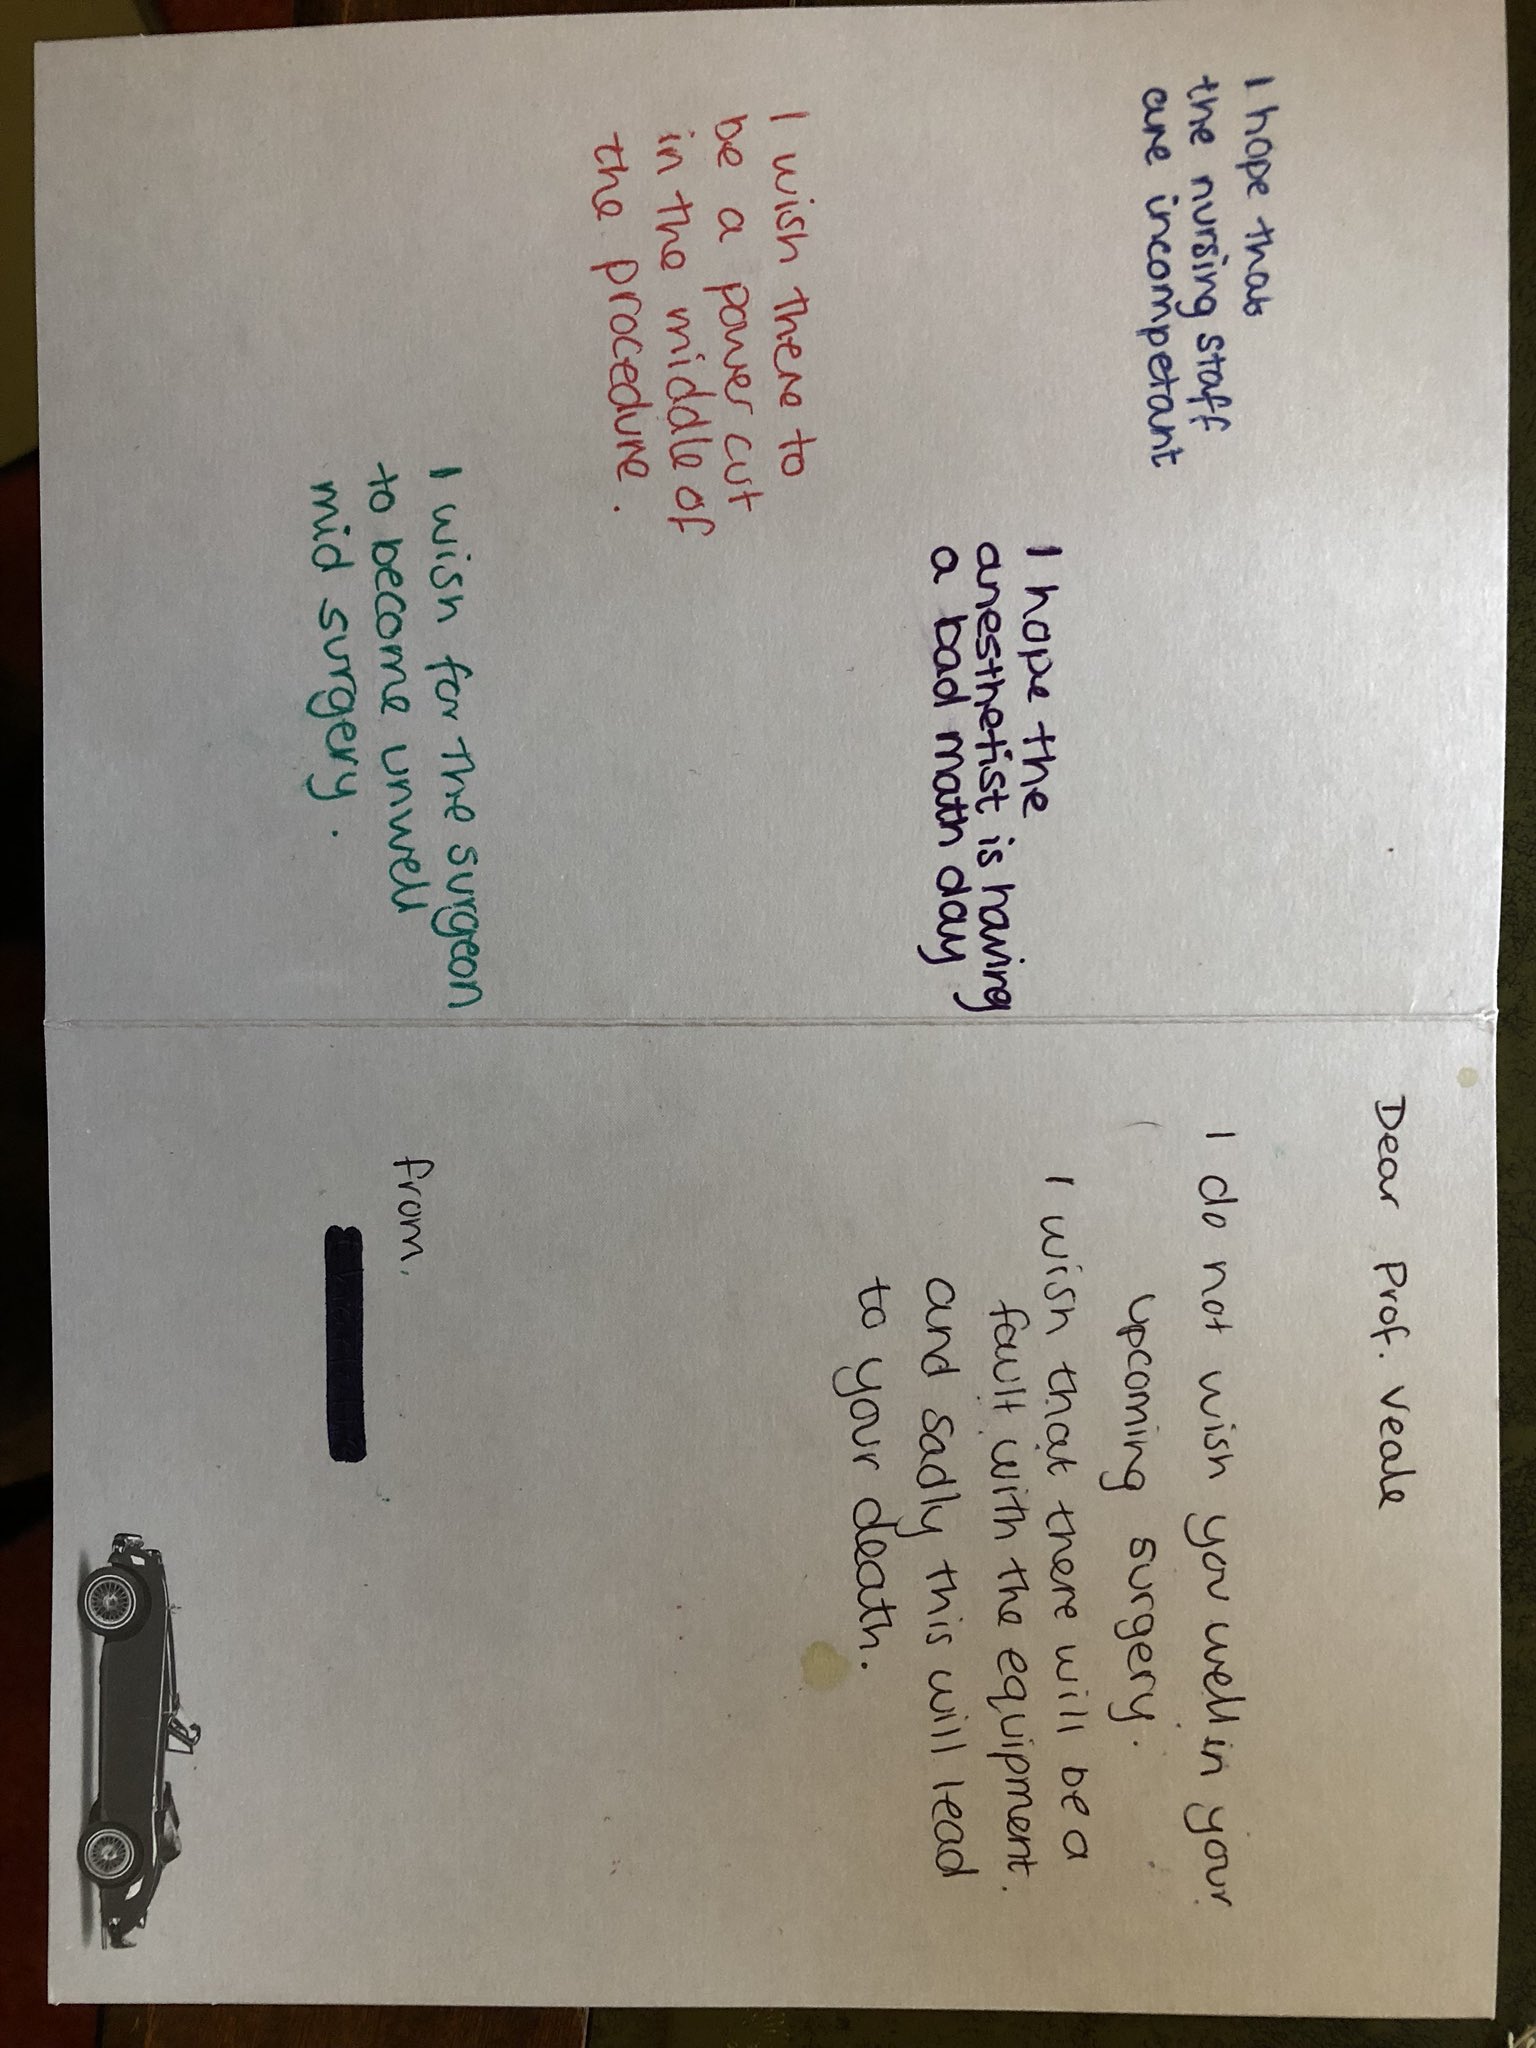 I hope that
the nursing staff
are incompetant
I hope the
anesthetist is having
a bad math day
I wish there to
be a power cut
in the middle of
the procedure.
I wish for the surgeon
to become unwell
mid surgery.
Dear Prof. Veale
I do not wish you well in your
upcoming surgery.
I wish that there will be a
fault with the equipment.
and sadly this will lead
to your death.
from,